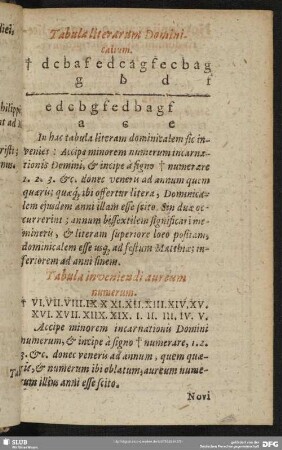 Tabula literarum Domini-
calium.
† d c b a f e d c a g f e c b a g
g b d f
e d c b g f e d b a g f
a c e
In hac tabula literam dominicalem sic in-
venies: Accipe minorem numerum incarna-
tionis Domini, & incipe à signo † numerare
1. 2. 3. &c. donec veneris ad annum quem
quæris; quæq; ibi offertur litera, Dominica-
lem ejusdem anni illam esse scito. Sin duæ oc-
currerint; annum bissextilem significari me-
mineris, & literam superiore loco positam,
dominicalem esse usq; ad festum Matthiæ; in-
feriorem ad anni finem.
Tabula inveniendi aureum
numerum.
† VI. VII. VIII. IX X XI. XII. XIII. XIV. XV.
XVI. XVII. XIIX. XIX. I. II. III. IV. V.
Accipe minorem incarnationis Domini
numerum, & incipe à signo † numerare, 1. 2.
3. &c. donec veneris ad annum, quem quæ-
ris, & numerum ibi oblatum, aureum nume-
rum illius anni esse scito.
Novi
SLUB
DFG